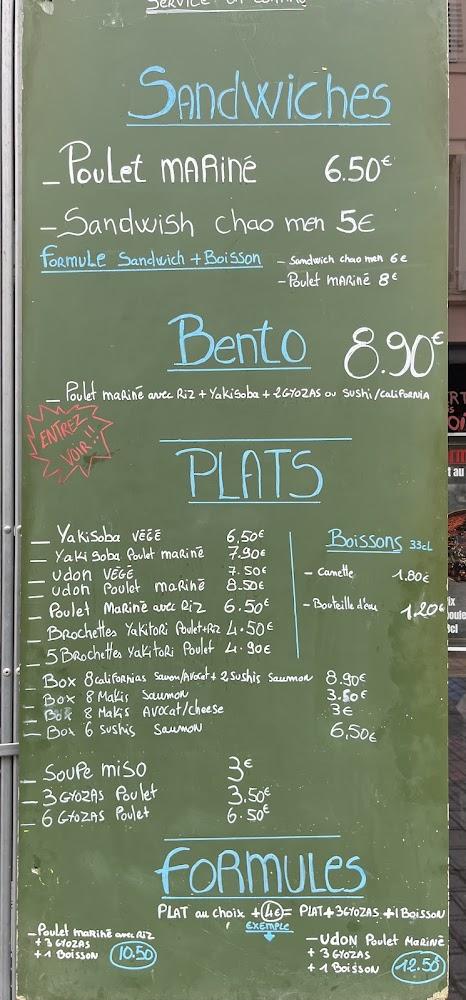 SERVICE
Sandwiches
- Poulet mariné 6.50€
- Sandwish chao men 5€
Formule Sandwich + Boisson - Sandwich chao men 6€
- Poulet mariné 8€
Bento 8.90€
- Poulet mariné avec Riz + Yakisoba + 2 Gyozas ou Sushi/California
ENTREZ
VOIR!!
PLATS
- Yakisoba végé 6,50€
- Yaki Soba Poulet mariné 7.90€
- Udon végé 7.50€
- Udon Poulot mariné 8.50€
- Poulet Mariné avec Riz 6.50€
- Brochettes Yakitori Poulet+Riz 4.50€
- 5 Brochettes Yakitori Poulet 4.90€
Boissons 33cL
- Canette 1.80€
- Bouteille d'eau 1,20€
- Box 8 Californias Saumon/Avocat + 2 Sushis Saumon 8.90€
- Box 8 Makis Saumon 3.50€
- Box 8 Makis Avocat/cheese 3€
- Box 6 sushis Saumon 6,50€
- Soupe miso 3€
- 3 Gyozas Poulet 3,50€
- 6 Gyozas Poulet 6.50€
FORMULES
PLAT au choix + 4€ = PLAT + 3 GYOZAS + 1 Boisson
EXEMPLE
- Poulet mariné avec Riz
+ 3 Gyozas
+ 1 Boisson 10.50
- Udon Poulet Mariné
+ 3 Gyozas
+ 1 Boisson 12.50